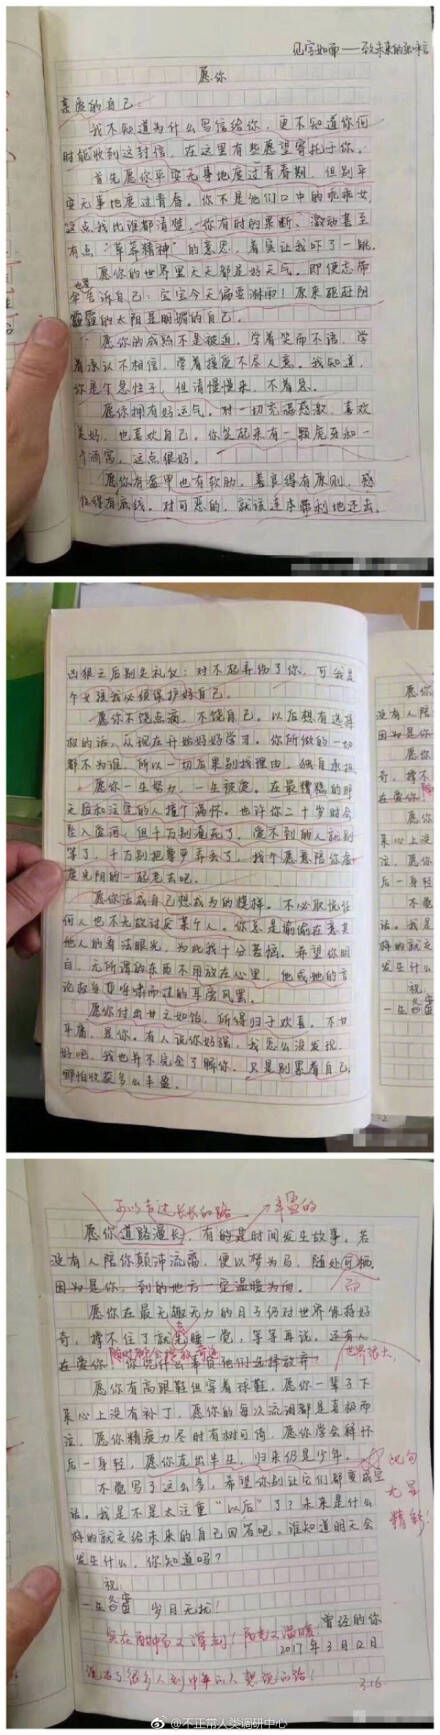 见字如面——致未来的
愿你
亲爱的自己：
我不知道为什么写信给你，更不知道你何
时能收到这封信，在这里有些愿望寄托于你。
首先愿你平安无事地度过青春期，但别平
安无事地度过青春。你不是他们口中的乖乖女，
这点我比谁都清楚，你有时的果断、激动甚至
有点“草莽精神”的意思，着实让我吓了一跳。
愿你的世界里天天都是好天气。即便忘带
伞也告诉自己：宝宝今天偏要淋雨！原来驱赶阴
霾的太阳是明媚的自己。
愿你的成熟不是被迫，学着笑而不语，学
着承认不相信，学着接受不尽人意。我知道，
你是个急性子，但请慢慢来，不着急。
愿你拥有好运气。对一切充满感激，喜欢
美好，也喜欢自己。你笑起来有一颗虎牙和一
个酒窝，这点很好。
愿你有盔甲也有软肋，善良得有原则，感
性得有底线。对可恶的，就该连本带利地还去。
凶狠之后别失礼仪：对不起弄伤了你，可我是
个女孩我必须保护好自己。
愿你不饶点病，不饶自己。以后想有选择
权的话，从现在开始好好学习。你所做的一切
都不为谁，所以一切后果别找理由，独自承担。
愿你一生努力，一生被爱。在最糟糕的那
天后和注定的人撞个满怀。也许你二十岁时会
坠入爱河，但千万别淹死了。爱不到的人就别
等了，千万别把尊严弄丢了，找个愿意陪你虚
度光阴的一起老去吧。
愿你活成自己想成为的模样。不必取悦任
何人也不无故讨厌某个人。你总是偷偷在意其
他人的看法眼光，为此我十分苦恼。希望你明
白，无所谓的东西不用放在心里，他或她的言
论应当是呼啸而过的耳旁风罢。
愿你付出甘之如饴，所得归于欢喜。不甘
平庸，是你。有人说你好强，我怎么没发现，
好吧，我也并不完全了解你。只是别累着自己，
哪怕收获多么丰盈。
丰盈的
愿你道路漫长，有的是时间发生故事。若
没有人陪你颠沛流离，便以梦为马，随处可栖。
因为是你，到的地方一定温暖为向。
愿你在最无趣无力的日子仍对世界保持好
奇，撑不住了就先睡一觉，等等再说。还有人
在爱你，你凭什么事冒他们选择放弃。
世界很大，
愿你有高跟鞋但穿着球鞋，愿你一辈子下
来心上没有补丁，愿你的每次流泪都是喜极而
泣，愿你精疲力尽时有树可倚，愿你学会释怀
后一身轻，愿你走出半生，归来仍是少年。
此句
尤呈
精彩！
不觉写了这么多，希望你别让它们都变成空
话。我是不是太注重“以后”了？未来是什么
样的就交给未来的自己回答吧。谁知道明天会
发生什么，你知道吗？
祝：
一生 岁月无扰！
曾经的你
2017年3月12日
3.16
@不正常人类调研中心